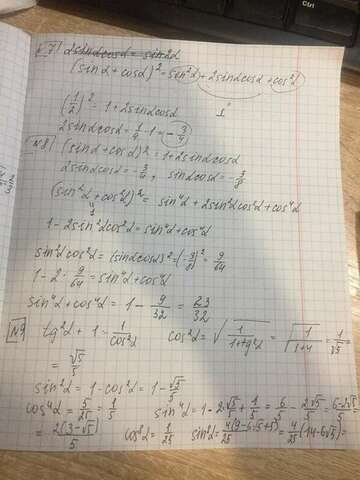 №7 2sinαcosα = sin2α
(sinα+cosα)²=sin²α+2sinαcosα+cos²α
1
(1/2)² = 1+2sinαcosα
2sinαcosα = 1/4 - 1 = - 3/4
№8 (sinα+cosα)² = 1+2sinαcosα
2sinαcosα = - 3/4 , sinαcosα = - 3/8
(sin²α+cos²α)² = sin⁴α+2sin²αcos²α+cos⁴α
1
1-2sin²αcos²α = sin⁴α+cos⁴α
sin²αcos²α = (sinαcosα)² = (-3/8)² = 9/64
1-2· 9/64 = sin⁴α+cos⁴α
sin⁴α+cos⁴α = 1- 9/32 = 23/32
№9 tg²α+1= 1/cos²α cos²α= √(1/(1+tg²α)) = √(1/(1+4)) = 1/√5 =
= √5/5
sin²α = 1-cos²α = 1- √5/5
cos⁴α = 5/25 = 1/5 sin⁴α = 1-2·√5/5+ 1/5 = 6/5 - 2√5/5 = (6-2√5)/5
= 2(3-√5)/5 cos⁸α = 1/25 sin⁸α =
Ctrl